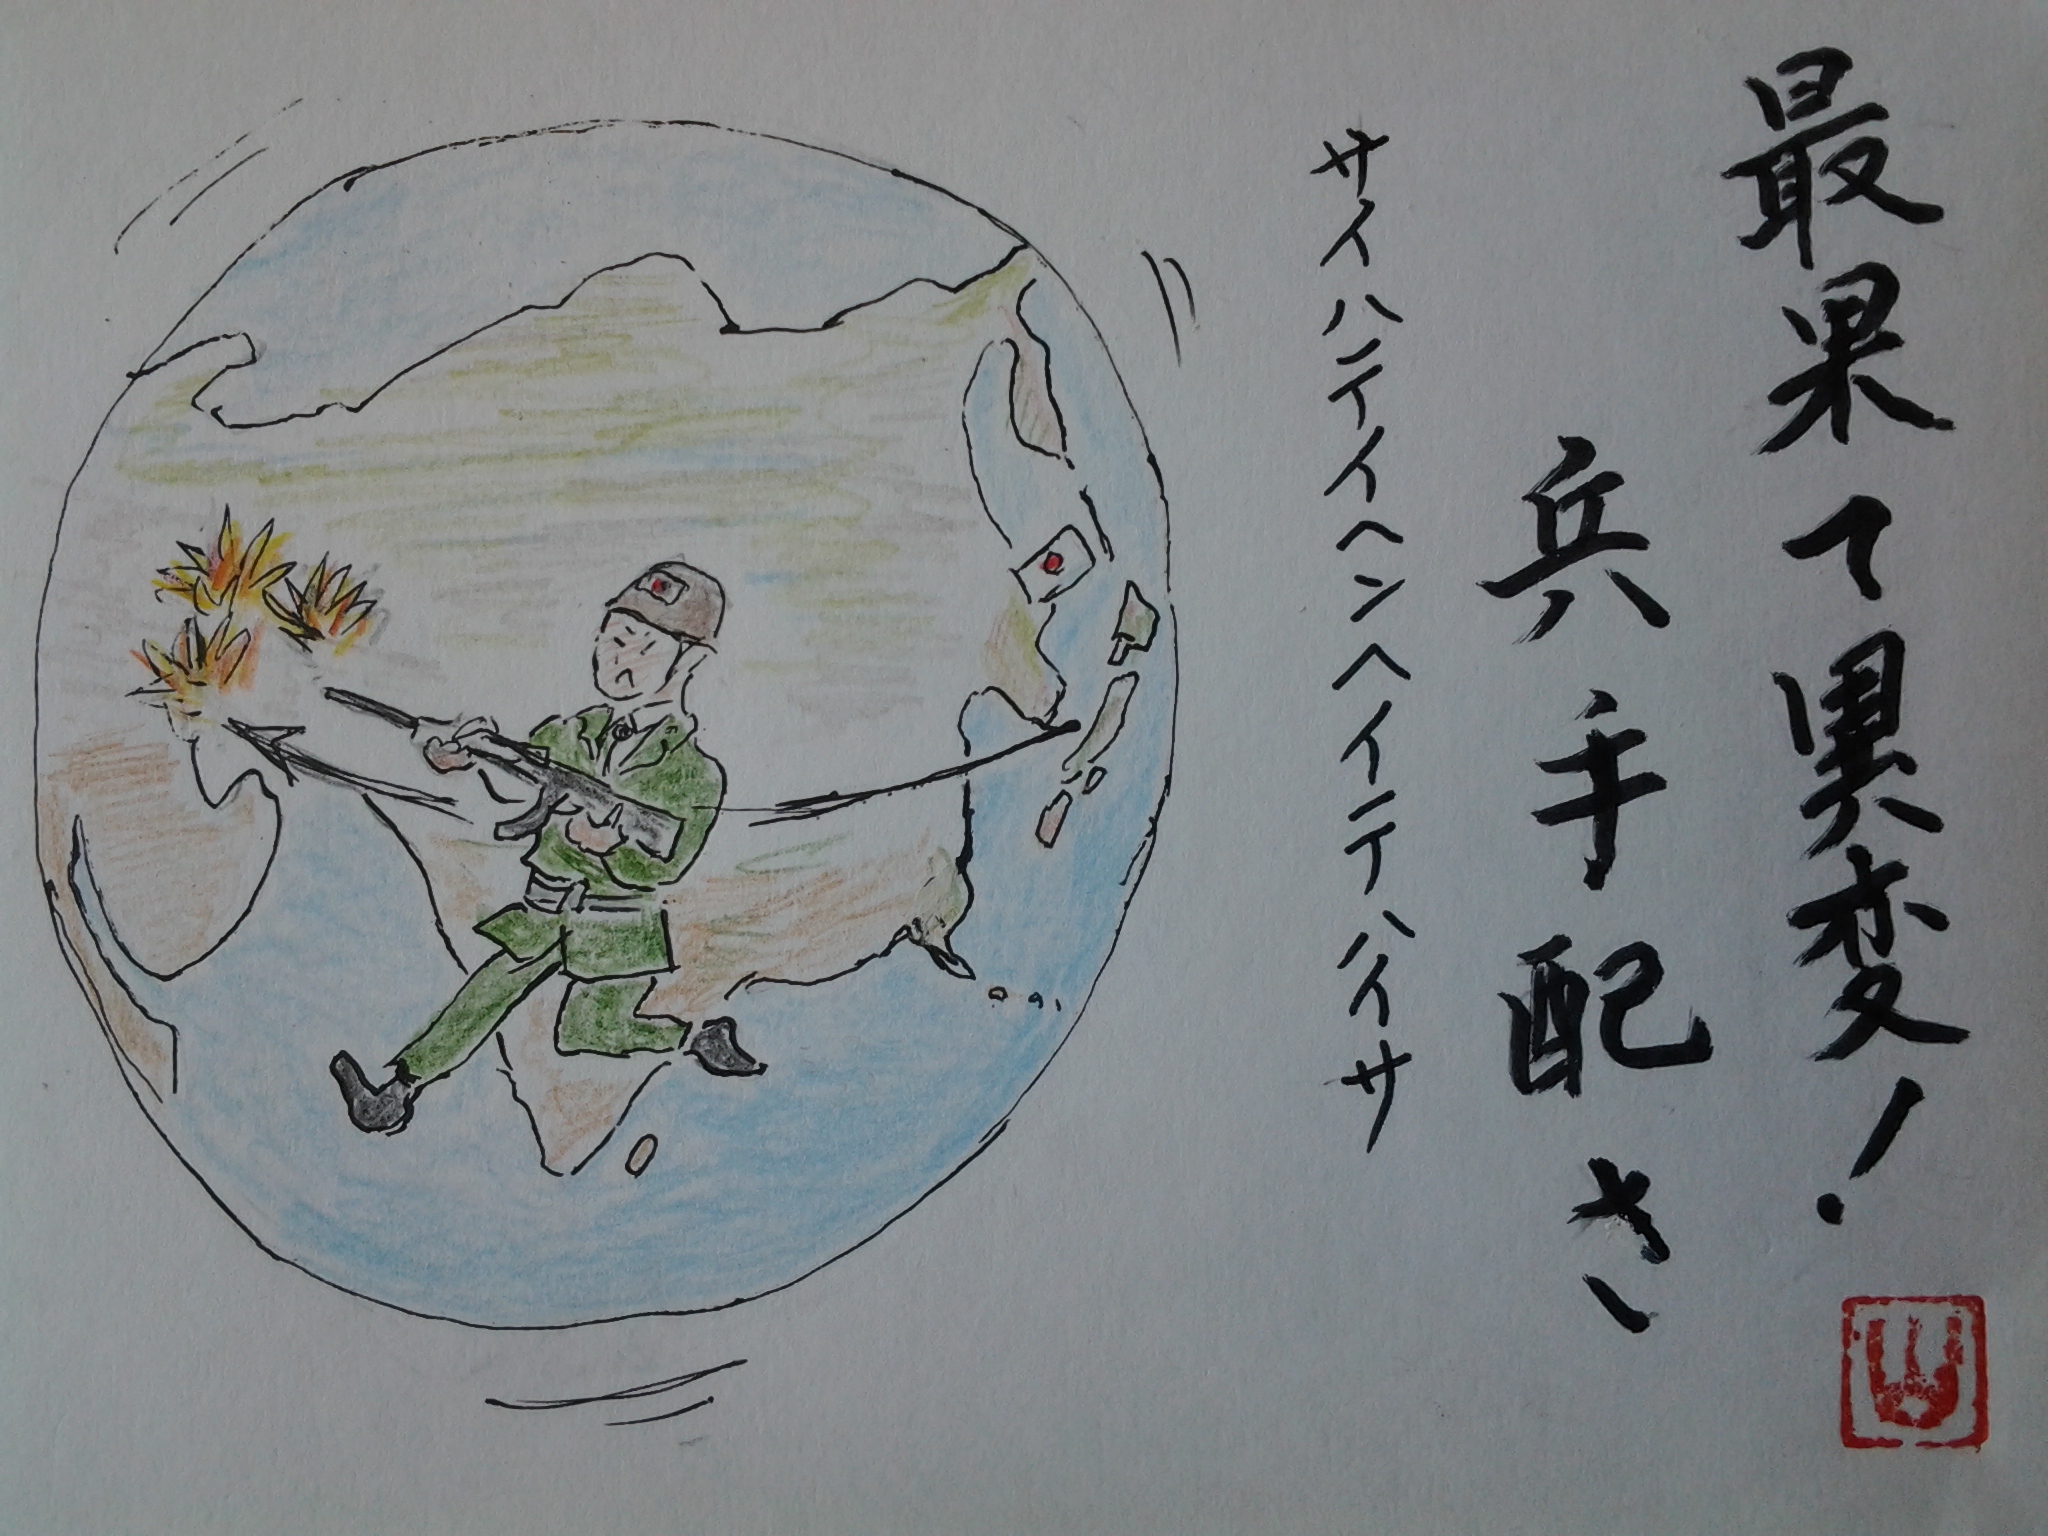 最果て異変！
兵手配さ
サイハテイヘンヘイテハイサ